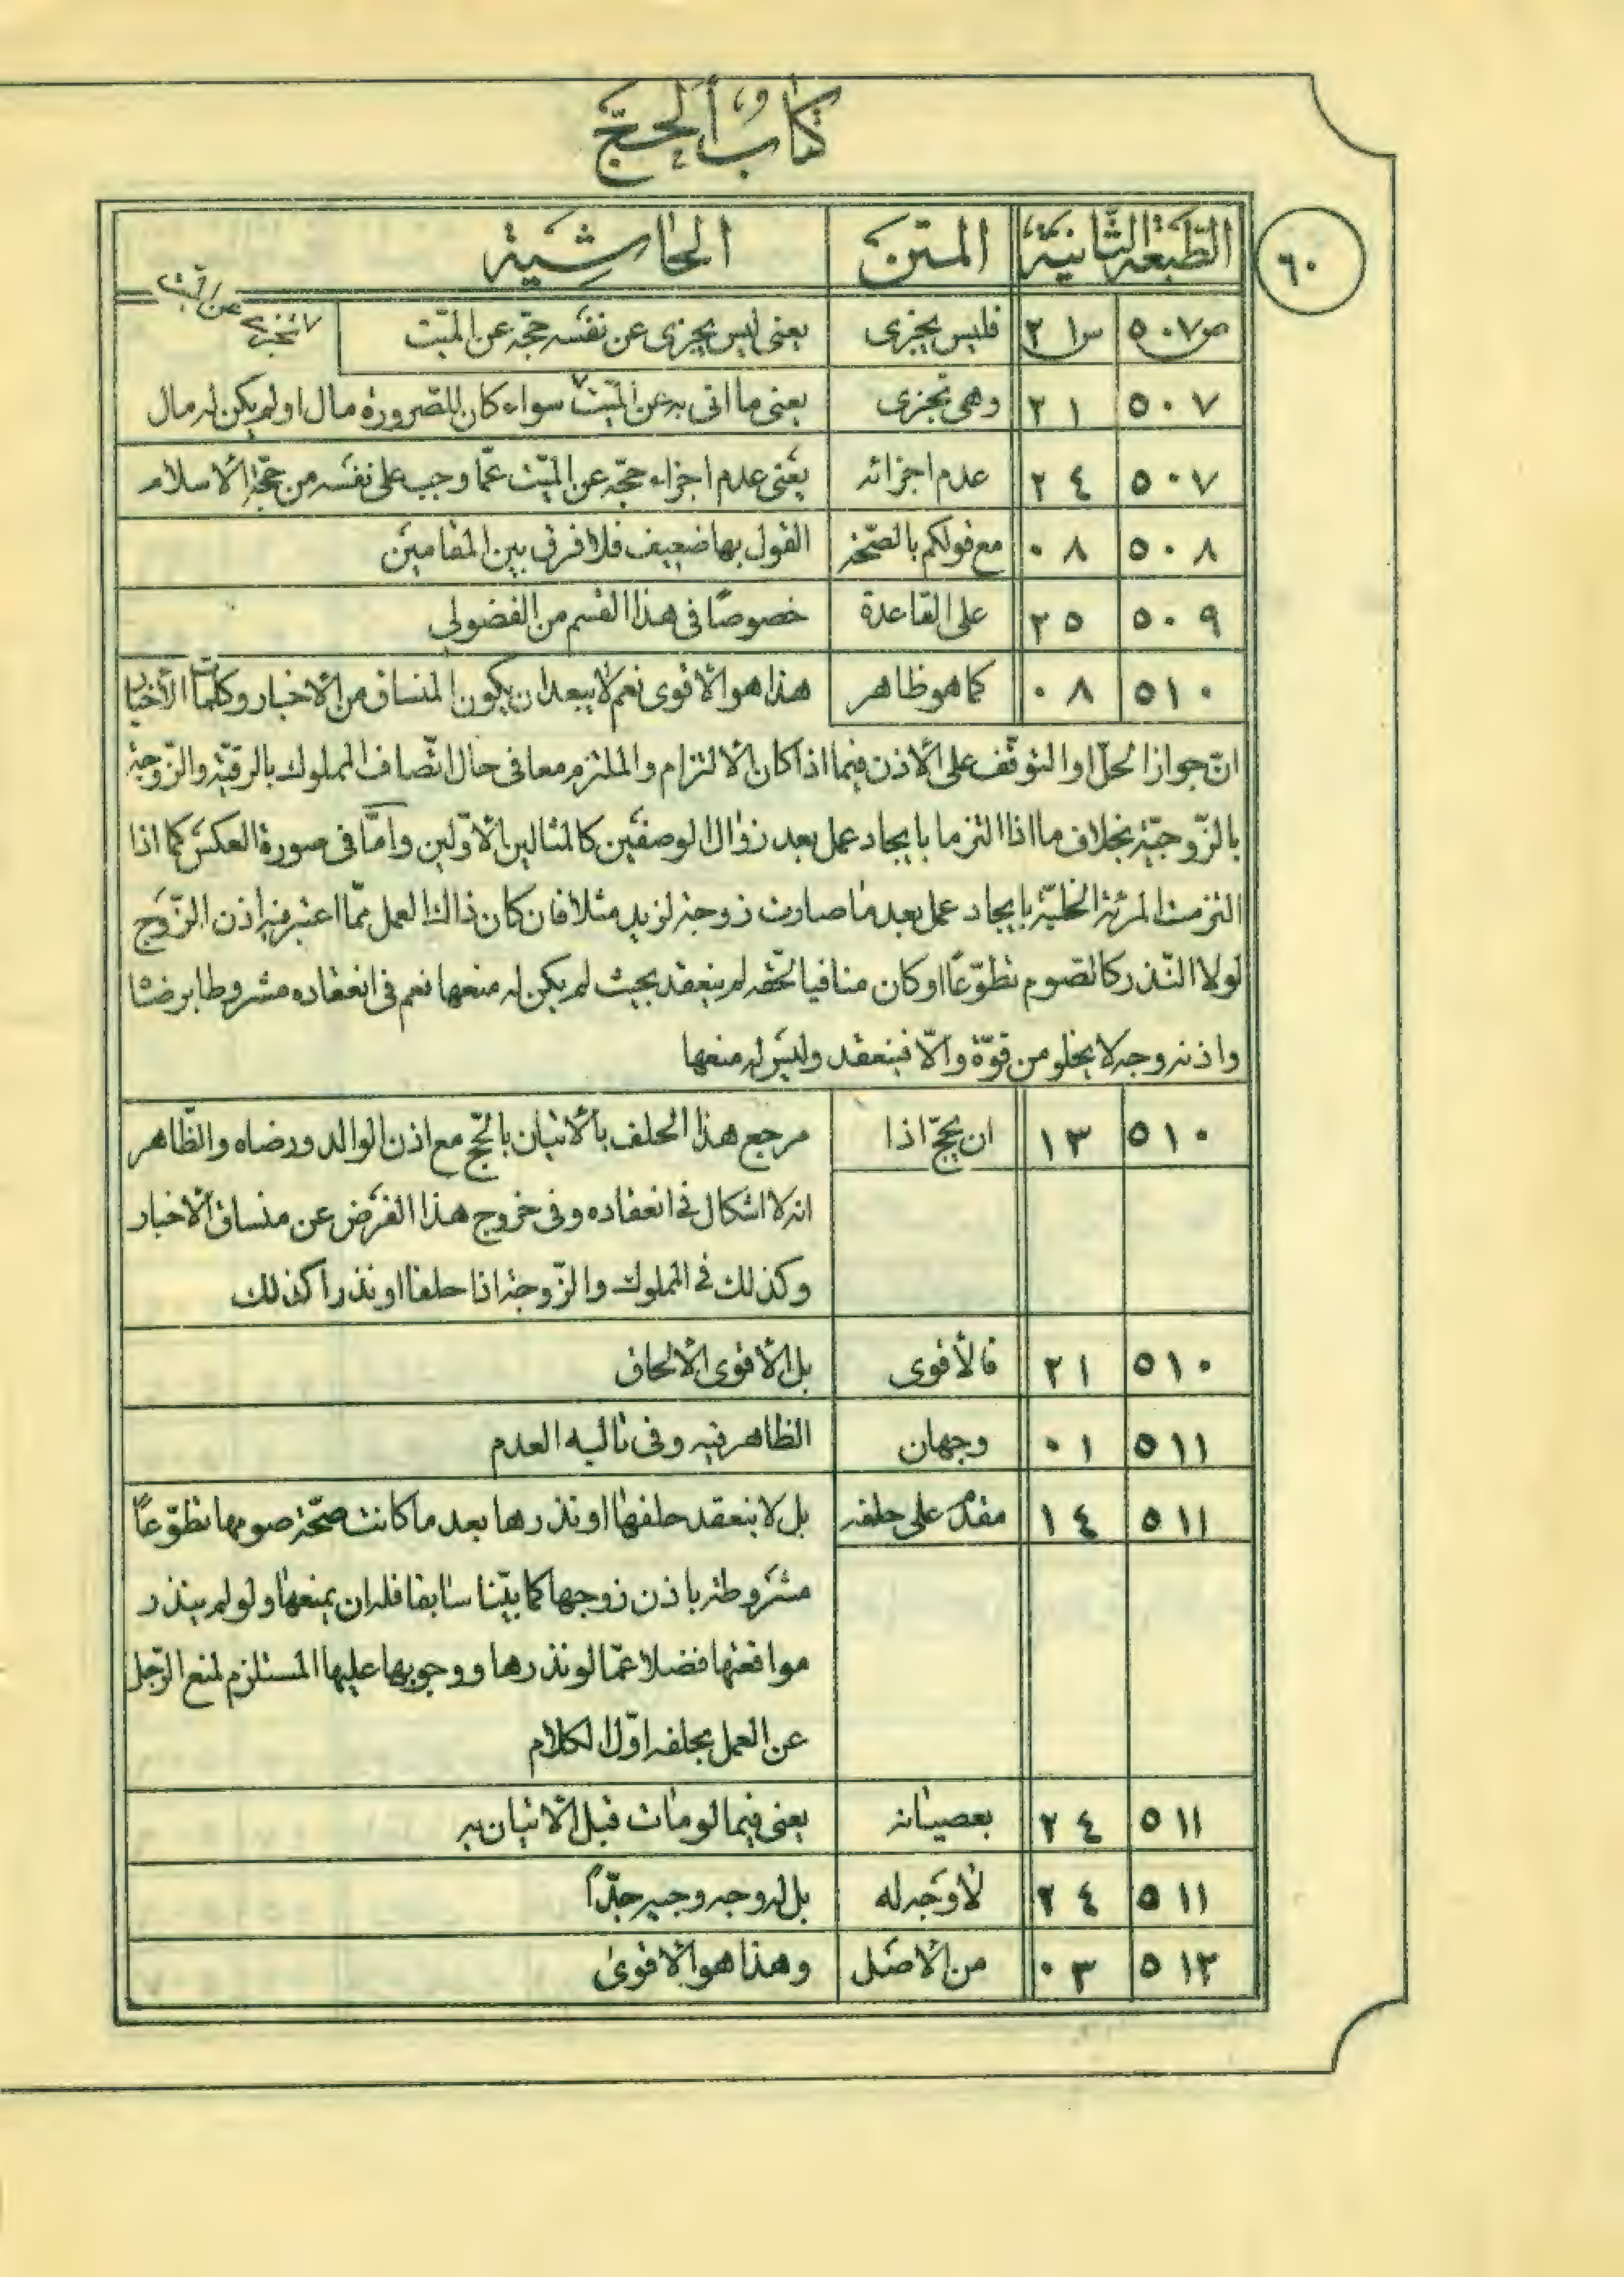 كتاب الحج
٦٠
الطبعة الثانية المتن الحاشية
ص ٥٠٧ س ٢١ فليس يجزى يعنى ليس يجزى عن نفسه حجّه عن الميّت
٥٠٧ ٢١ وهى تجزى يعنى ما اتى به عن الميّت سواء كان للصّرورة مال او لم يكن له مال
٥٠٧ ٢٤ عدم اجزائه يعنى عدم اجزاء حجّه عن الميّت عمّا وجب على نفسه من حجّة الاسلام
٥٠٨ ٠٨ مع قولكم بالصّحّة القول بها ضعيف فلا فرق بين المقامين
٥٠٩ ٢٥ على القاعدة خصوصًا فى هذا القسم من الفضولي
٥١٠ ٠٨ كما هو ظاهر هذا هو الاقوى نعم لا يبعد ان يكون المنساق من الاخبار وكلمات
انّ جواز الحلّ او التوقّف على الاذن فيما اذا كان الالتزام والملتزم معا فى حال اتّصاف المملوك بالرقيّة والزّوجة
بالزّوجيّة بخلاف ما اذا التزما بايجاد عمل بعد زوال الوصفين كالمثالين الاوّلين وامّا فى صورة العكس كما اذا
التزمت المرئة الخليّة بايجاد عمل بعد ما صارت زوجة لزيد مثلا فان كان ذاك العمل ممّا اعتبر فيه اذن الزّوج
لولا النّذر كالصّوم تطوّعًا او كان منافيا لحقّه لم ينعقد بحيث لم يكن له منعها نعم فى انعقاده مشروطا برضاه
واذنه وجه لا يخلو من قوّة والّا فينعقد وليس له منعها
٥١٠ ١٣ ان يحجّ اذا مرجع هذا الحلف بالاتيان بالحجّ مع اذن الوالد ورضاه والظّاهر
انه لا اشكال فى انعقاده وفى خروج هذا الفرض عن منساق الاخبار
وكذلك فى المملوك والزّوجة اذا حلفا او نذرا كذلك
٥١٠ ٢١ فالأقوى بل الاقوى الالحاق
٥١١ ٠١ وجهان الظاهر فيه وفى تاليه العدم
٥١١ ١٤ مقدّم على حلفه بل لا ينعقد حلفها او نذرها بعد ما كانت صحّة صومها تطوّعًا
مشروطة باذن زوجها كما بيّنا سابقا فله ان يمنعها ولو لم ينذر
مواقعتها فضلا عمّا لو نذرها ووجوبها عليها المستلزم لمنع الرّجل
عن العمل بحلفه اوّل الكلام
٥١١ ٢٤ بعصيانه يعنى فيما لو مات قبل الاتيان به
٥١١ ٢٤ لا وجه له بل له وجه وجيه جدّاً
٥١٣ ٠٣ من الاصل وهذا هو الاقوى